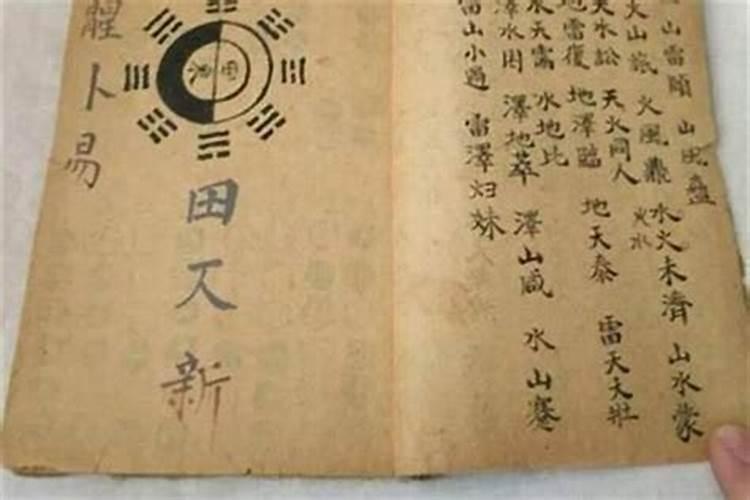 山雷頤 山風蠱
火山旅 火風鼎 火水 水火未濟 山水蒙
天水訟 天火同人
地雷復 地澤臨 地天泰 雷天大壯
水天需 水地比
澤水困 澤地萃 澤山咸 水山蹇
雷山小過 雷澤归妹
田又新
卜易